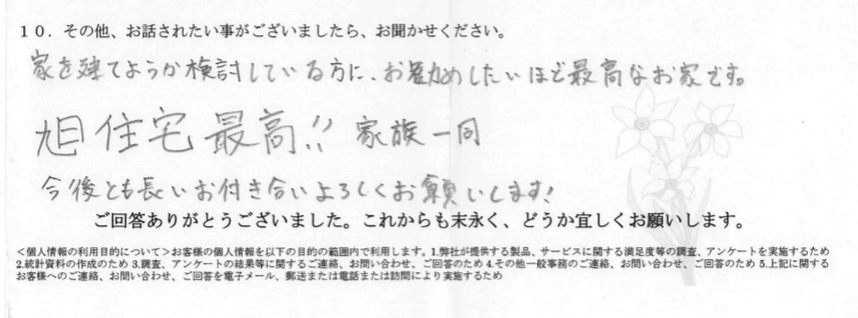 10．その他、お話されたい事がございましたら、お聞かせください。
家を建てようか検討している方に、お勧めしたいほど最高なお家です。
旭住宅最高!! 家族一同
今後とも長いお付き合いよろしくお願いします!
ご回答ありがとうございました。これからも末永く、どうか宜しくお願いします。
＜個人情報の利用目的について＞お客様の個人情報を以下の目的の範囲内で利用します。1.弊社が提供する製品、サービスに関する満足度等の調査、アンケートを実施するため
2.統計資料の作成のため 3.調査、アンケートの結果等に関するご連絡、お問い合わせ、ご回答のため 4.その他一般事務のご連絡、お問い合わせ、ご回答のため 5.上記に関する
お客様へのご連絡、お問い合わせ、ご回答を電子メール、郵送または電話または訪問により実施するため